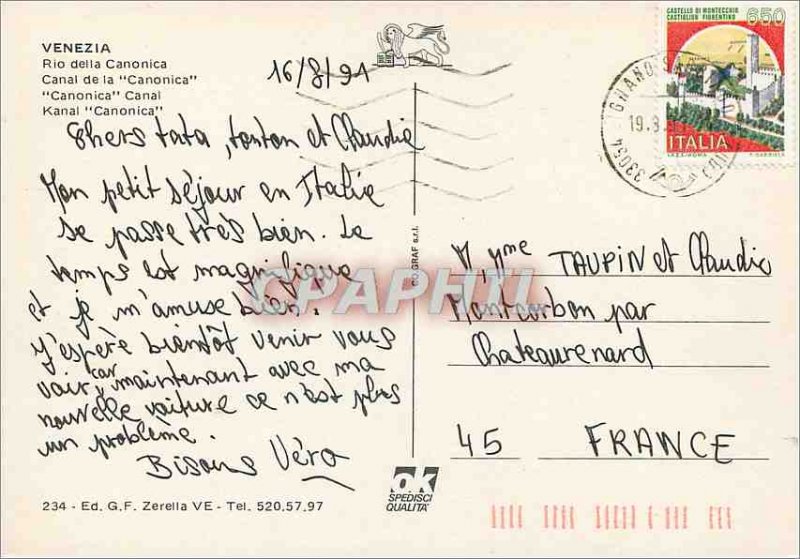 VENEZIA
Rio della Canonica
Canal de la "Canonica"
"Canonica" Canal
Kanal "Canonica"
16/8/91
Chers tata, tonton et Claudie
Mon petit séjour en Italie
se passe très bien. Le
temps est magnifique
et je m'amuse bien.
J'espère bientôt venir vous
voir, car maintenant avec ma
nouvelle voiture ce n'est plus
un problème.
Bisous Véro
234 - Ed. G.F. Zerella VE - Tel. 520.57.97
GRAF s.r.l.
ok
SPEDISCI
QUALITA'
CASTELLO DI MONTECCHIO
CASTIGLION FIORENTINO
650
ITALIA
33054
19.8
M, Mme TAUPIN et Claudie
Montcorbon par
Chateaurenard
45 FRANCE
CPAPHIL